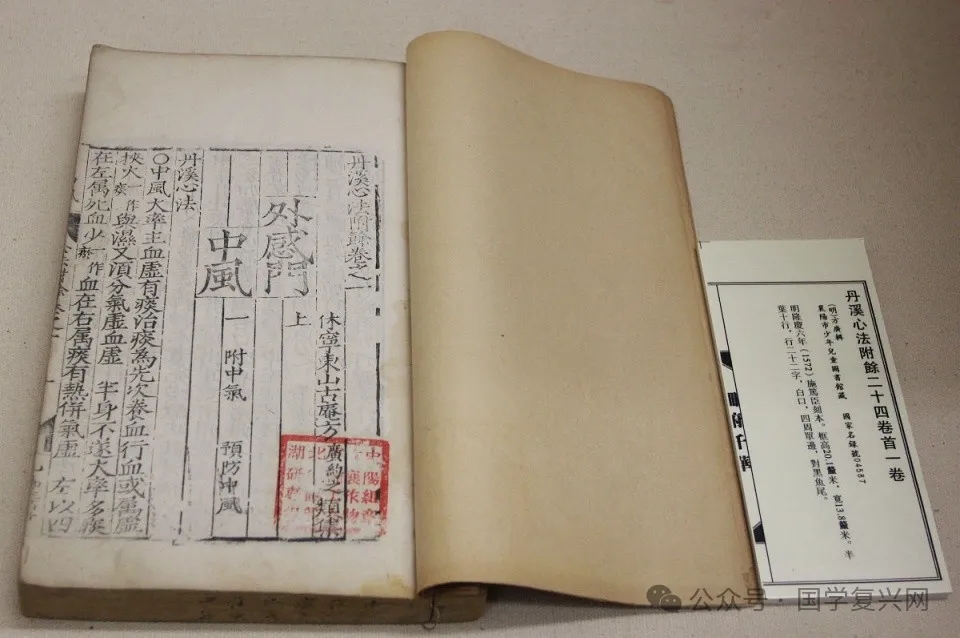 丹溪心法附餘卷之一
休寧東山古菴方廣約之類集
外感門 上
中風 一 附中氣 預防中風
丹溪心法
〇中風大率主血虛有痰治痰為先次養血行血或屬虛
挾火一作痰與濕又須分氣虛血虛 半身不遂大率多痰
在左屬死血少一作瘀血在右屬痰有熱併氣虛 左以四
丹溪心法附餘二十四卷首一卷
(明)方廣輯
襄陽市少年兒童圖書館藏 國家名錄號04587
明隆慶六年(1572)施篤臣刻本。框高20.1釐米,寬13.8釐米。半
葉十行,行二十二字,白口,四周單邊,對黑魚尾。
公众号·国学复兴网